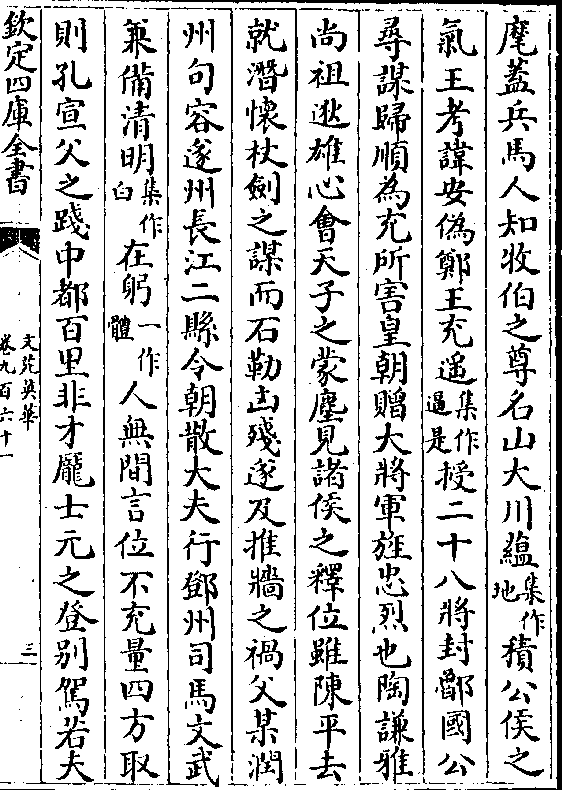 麾蓋兵馬人知牧伯之尊名山大川蘊集作地積公侯之
氣王考諱安偽鄭王充遥集作逼是授二十八將封鄅國公
尋謀歸順為充所害皇朝贈大將軍旌忠烈也陶謙雅
尚祖逖雄心會天子之蒙塵見諸侯之釋位雖陳平去
就潛懷杖劍之謀而石勒凶殘遂及推牆之禍父某潤
州句容遂州長江二縣令朝散大夫行鄧州司馬文武
兼備清明集作白在躬一作體人無間言位不充量四方取
則孔宣父之踐中都百里非才龎士元之登別駕若夫
欽定四庫全書
文苑英華
卷九百六十一
三